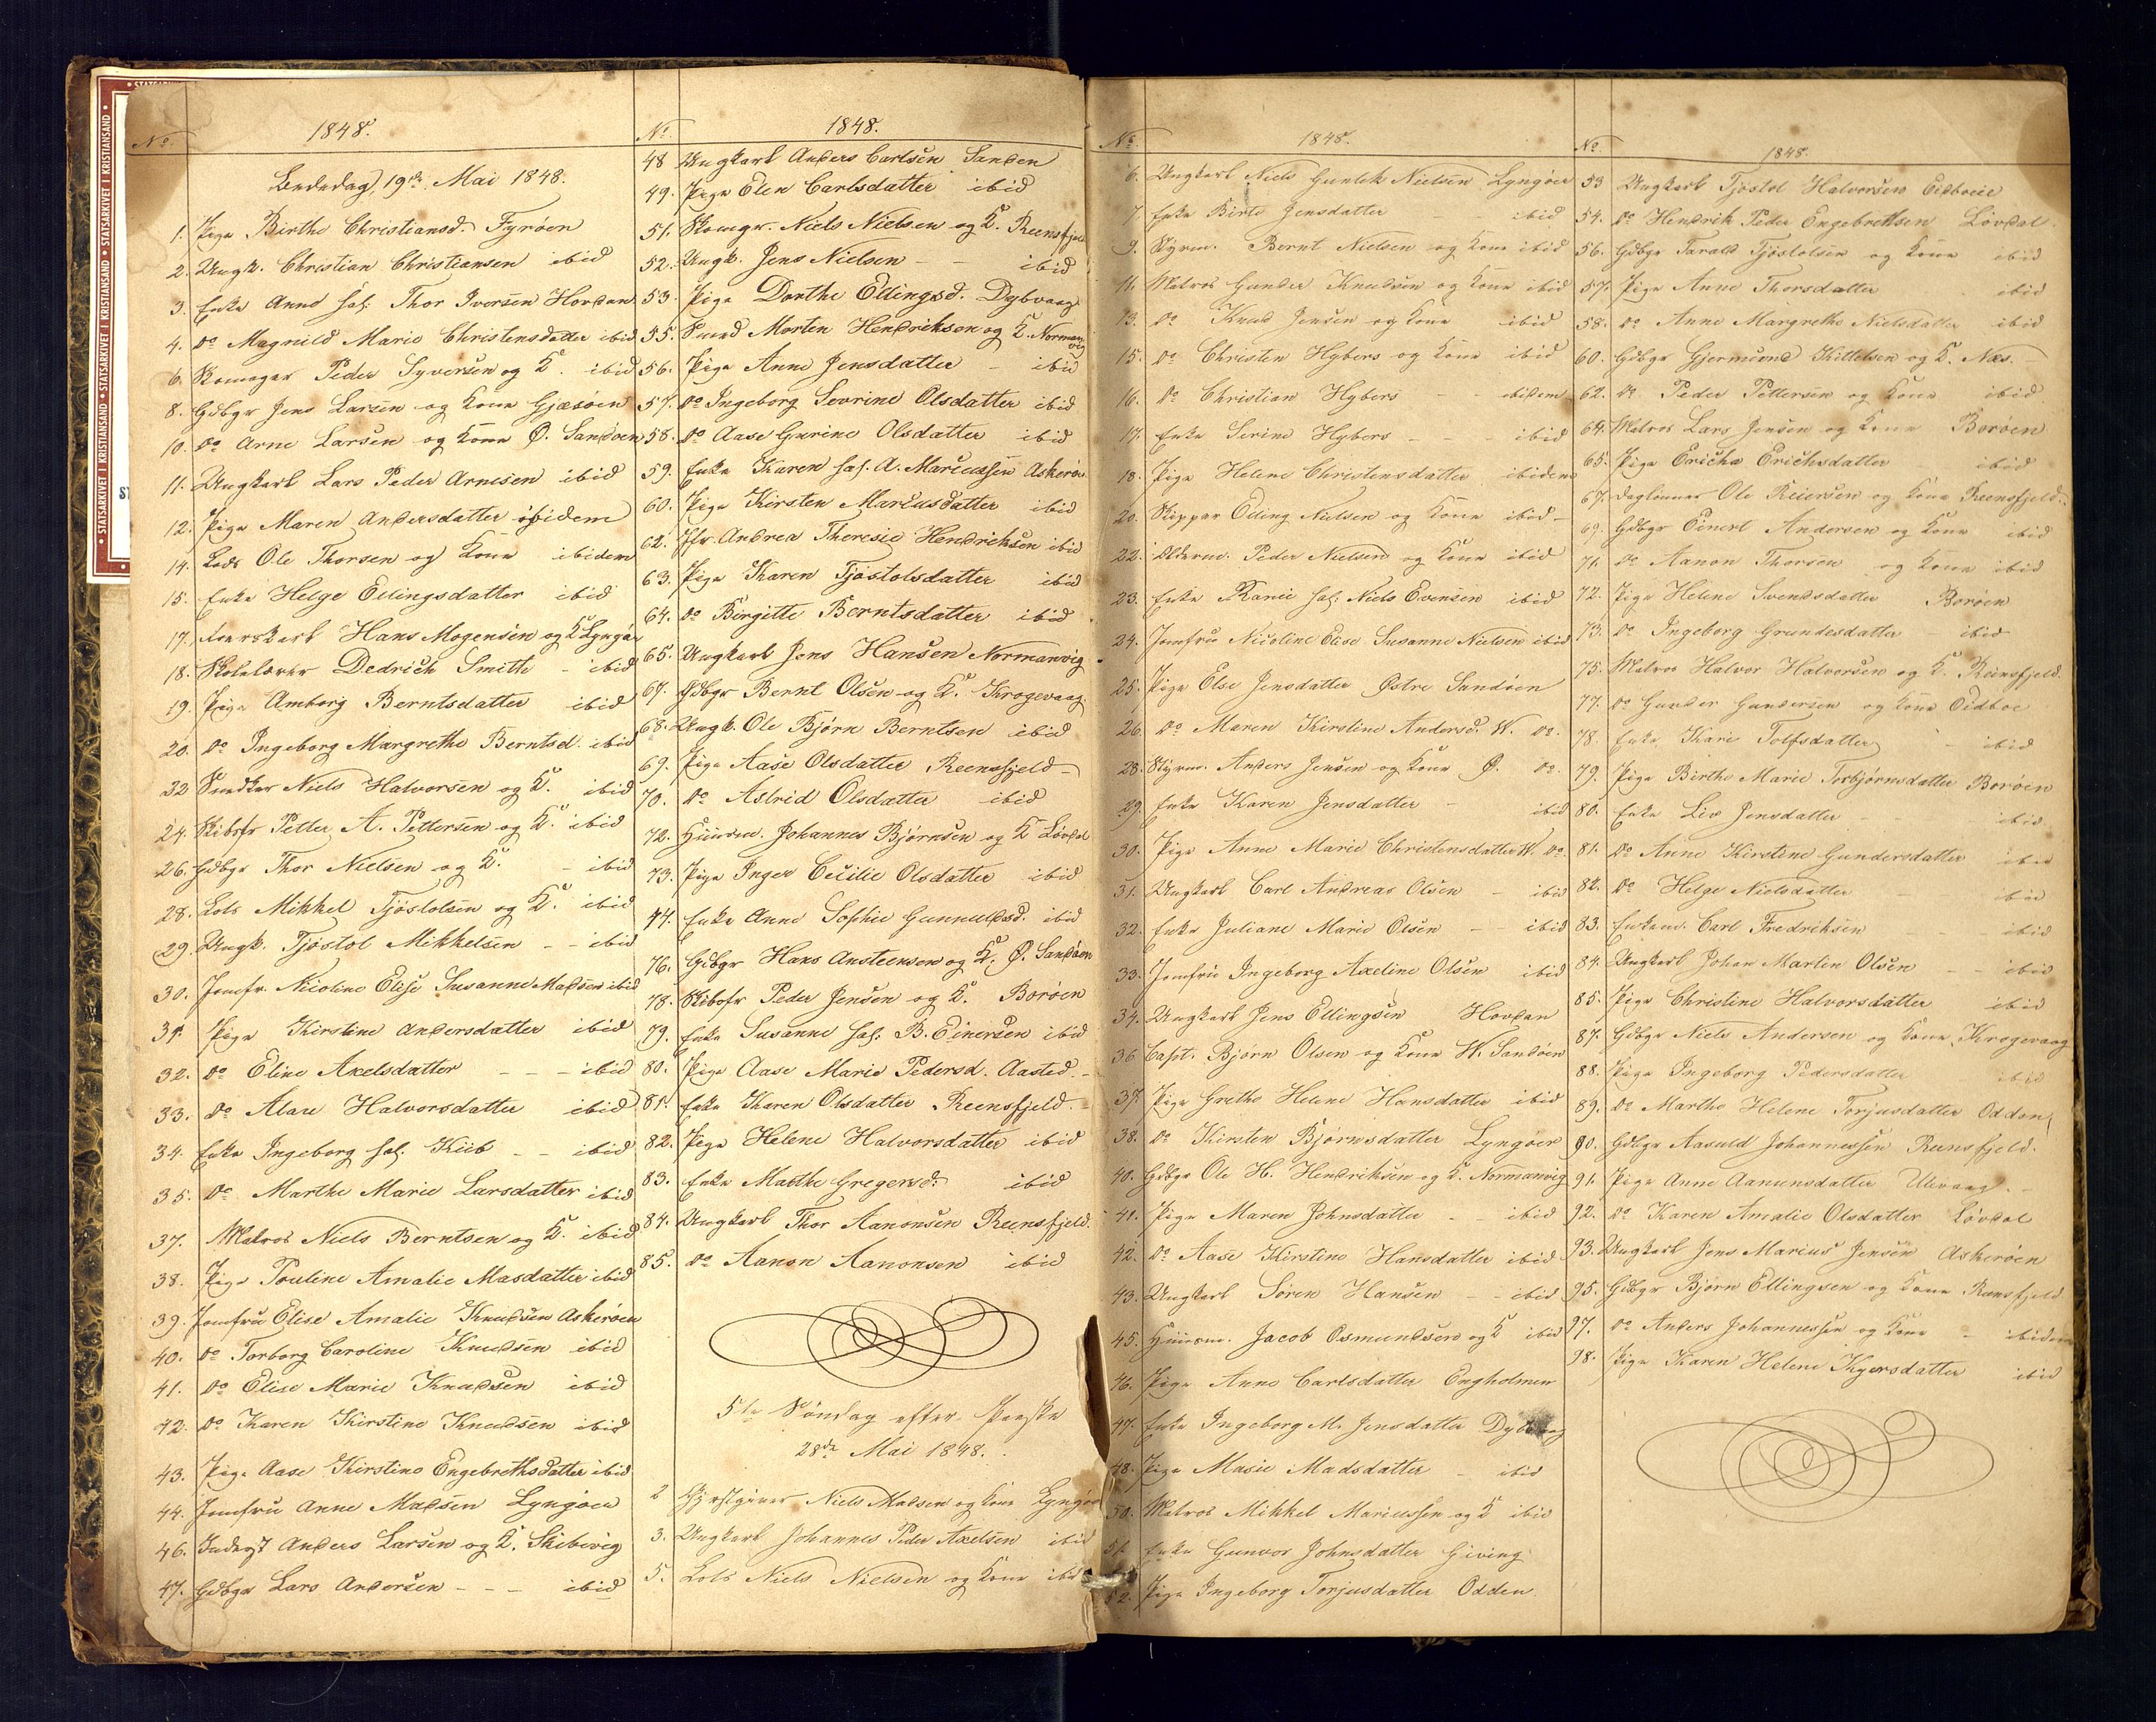 STATSARKIVET I KRISTIANSAND • STATSARKIVET I KRISTIANSAND • STATSARKIVET I KRISTIANSAND
No. 1848.
Bededag, 19de Mai 1848.
1. Pige Birthe Christiansd. Fyröen
2. Ungk. Christian Christiansen ibid
3. Enke Anne sal. Thor Iversen Hovdan
4. do Magnild Marie Christensdatter ibid
6. Skomager Peder Syversen og K. ibid
8. Gdbgr Jens Larsen og Kone Gjæsöen
10. do Arne Larsen og Kone Ö. Sandöen
11. Ungkarl Lars Peder Arnesen ibid
12. Pige Maren Andersdatter ibidem
14. Lods Ole Thorsen og Kone ibidem
15. Enke Helge Ellingsdatter ibid
17. Hans Mogensen og K Lyngör
18. Skolelærer Dedrich Smith - ibid
19. Pige Amborg Berntsdatter ibid
20. do Ingeborg Margrethe Berntsd. ibid
22 Snedker Niels Halvorsen og K. ibid
24. Skibsfr Petter A. Pettersen og K. ibid
26. Gdbgr Thor Nielsen og K. - ibid
28. Lods Mikkel Tjöstolsen og K. ibid
29. Ungk. Tjöstol Mikkelsen - - ibid
30. Jomfr. Nicoline Elise Susanne Madsen ibid
31. Pige Kirstine Andersdatter ibid
32. do Eline Axelsdatter - - - ibid
33. do Halvorsdatter ibid
34. Enke Ingeborg sal. Kiib - - ibid
35. do Marthe Marie Larsdatter ibid
37. Matros Niels Berntsen og K. ibid
38. Pige Pouline Amalie Masdatter ibid
39. Jomfru Elise Amalie Knudsen Askeröen
40. do Torborg Caroline Knudsen ibid
41. do Elise Marie Knudsen ibid
42. do Karen Kirstine Knudsen ibid
43. Pige Aase Kirstine Engebrethsdatter ibid
44. Jomfru Anne Madsen Lyngöer
46. Inderst Anders Larsen og K. Skibevig
47. Gdbgr Lars Andersen - - - ibid
No. 1848.
48 Ungkarl Anders Carlsen Sanden
49. Pige Elen Carlsdatter ibid
51. Skomgr. Niels Nielsen og K. Reensfjeld
52. Ungk. Jens Nielsen - - ibid
53. Pige Dorthe Ellingsd. Dybvaag
55. Smed Morten Hendriksen og K. Normanvig
56. Pige Anne Jensdatter - ibid
57. do Ingeborg Sevrine Olsdatter ibid
58. do Aase Gurine Olsdatter ibid
59. Enke Karen sal. A. Marcussen Askeröen
60. Pige Kirsten Marcusdatter ibid
62. Jfr. Andrea Theresie Hendriksen ibid
63. Pige Karen Tjöstolsdatter ibid
64. do Birgitte Berntsdatter ibid
65. Ungkarl Jens Hansen Normanvig
67. Gdbgr Bernt Olsen og K. Krogevaag
68. Ungk. Ole Björn Berntsen ibid
69. Pige Aase Olsdatter Reensfjeld -
70. do Astrid Olsdatter ibid
72. Huusm. Johannes Björnsen og K Lövdal
73. Pige Inger Cecilie Olsdatter ibid
74. Enke Anne Sophie Gunnuldsd. ibid
76. Gdbgr Hans Ansteensen og K. Ö. Sandöen
78. Skibsfr Peder Jensen og K. Boröen
79. Enke Susanne sal. B. Einersen ibid
80. Pige Aase Marie Pedersd. Aasted. -
81. Enke Karen Olsdatter Reensfjeld. -
82. Pige Helene Halvorsdatter ibid
83. Enke Marthe Gregersd. ibid
84. Ungkarl Thor Aanonsen Reensfjeld.
85. do Aanon Aanonsen ibid
5te Söndag efter Paaske
28de Mai 1848.
2 Gjæstgiver Niels Madsen og Kone Lyngör
3. Ungkarl Johannes Peder Axelsen ibid
5. Lods Niels Nielsen og Kone ibid
No. 1848.
6. Ungkarl Niels Gunlek Nielsen Lyngöer
7. Enke Birte Jensdatter - - ibid
9. Styrm. Bernt Nielsen og Kone ibid
11. Matros Gunder Knudsen og Kone ibid
13. do Knud Jensen og Kone ibid
15. do Christen Hybers og Kone ibid
16. do Christian Hybers - - ibidem
17. Enke Serine Hybers - - - ibid
18. Pige Helene Christensdatter ibidem
20. Skipper Elling Nielsen og Kone ibid -
22. Olderm. Peder Nielsen og Kone ibid
23. Enke Karen sal. Niels Evensen ibid
24. Jomfru Nicoline Elise Susanne Nielsen ibid
25. Pige Else Jensdatter Östre Sandöen
26. do Maren Kirstine Andersd. W. do.
28. Styrm. Anders Jensen og Kone Ö. do.
29. Enke Karen Jensdatter - ibid
30. Pige Anne Marie Christensdatter W. do.
31. Ungkarl Carl Andreas Olsen - ibid
32. Enke Juliane Marie Olsen - - ibid
33. Jomfru Ingeborg Axeline Olsen ibid
34. Ungkarl Jens Ellingsen Hovdan
36. Capt. Björn Olsen og Kone W. Sandöen
37. Pige Grethe Helene Hansdatter ibid
38. do Kirsten Björnsdatter Lyngöer
40. Gdbgr Ole H. Hendriksen og K. Normanvig
41. Pige Maren Johnsdatter - - ibid
42. do Aase Kirstine Hansdatter ibid
43. Ungkarl Sören Hansen - - ibid
45. Huusm. Jacob Osmundsen og K ibid
46. Pige Anne Carlsdatter Engholmen
47. Enke Ingeborg M. Jensdatter Dybvaag
48. Pige Masie Madsdatter - ibid
50. Matros Mikkel Mariussen og K ibid
51. Enke Gunvor Johnsdatter Giving
52. Pige Ingeborg Torjusdatter Odden.
No. 1848.
53 Ungkarl Tjöstol Halvorsen Eidboeie
54. do Hendrik Peder Engebrethsen Lövdal
56. Gdbgr Tarald Tjöstolsen og Kone ibid
57. Pige Anne Thorsdatter ibid
58. do Anne Margrethe Nielsdatter ibid
60. Gdbgr Gjermund Kittelsen og K. Næs. -
62. do Peder Pettersen og Kone ibid
64. Matros Lars Jensen og Kone Boröen
65. Pige Ericha Erichsdatter ibid
67. Daglönner Ole Reiersen og Kone Reensfjeld.
69. Gdbgr Einert Andersen og Kone ibid
71. do Aanon Thorsen og Kone ibid
72. Pige Helene Svendsdatter Boröen
73. do Ingeborg Grundesdatter ibid
75. Matros Halvor Halvorsen og K. Reinsfjeld.
77. do Gunder Gundersen og Kone Eidboe
78. Enke Kari Tolfsdatter - ibid
79. Pige Birthe Marie Torbjörnsdatter Boröen
80. Enke Liv Jensdatter - - ibid
81. do Anne Kirstine Gundersdatter ibid
82. do Helge Nielsdatter ibid
83. Enkem. Carl Fredriksen - - - ibid
84. Ungkarl Johan Martin Olsen - - ibid
85. Pige Christine Halvorsdatter ibid
87. Gdbgr Niels Andersen og Kone Krogevaag
88. Pige Ingeborg Pedersdatter ibid
89. do Marthe Helene Torjusdatter Odden,
90. Gdbgr Aasuld Johannessen Reensfjeld.
91. Pige Anne Aanunsdatter Ulevaag. -
92. do Karen Amalie Olsdatter Lövdal
93. Ungkarl Jens Marius Jensen Askeröen
95. Gdbgr Björn Ellingsen og Kone Reensfjeld
97. do Anders Johannessen og Kone - ibidem
98. Pige Karen Helene ibid